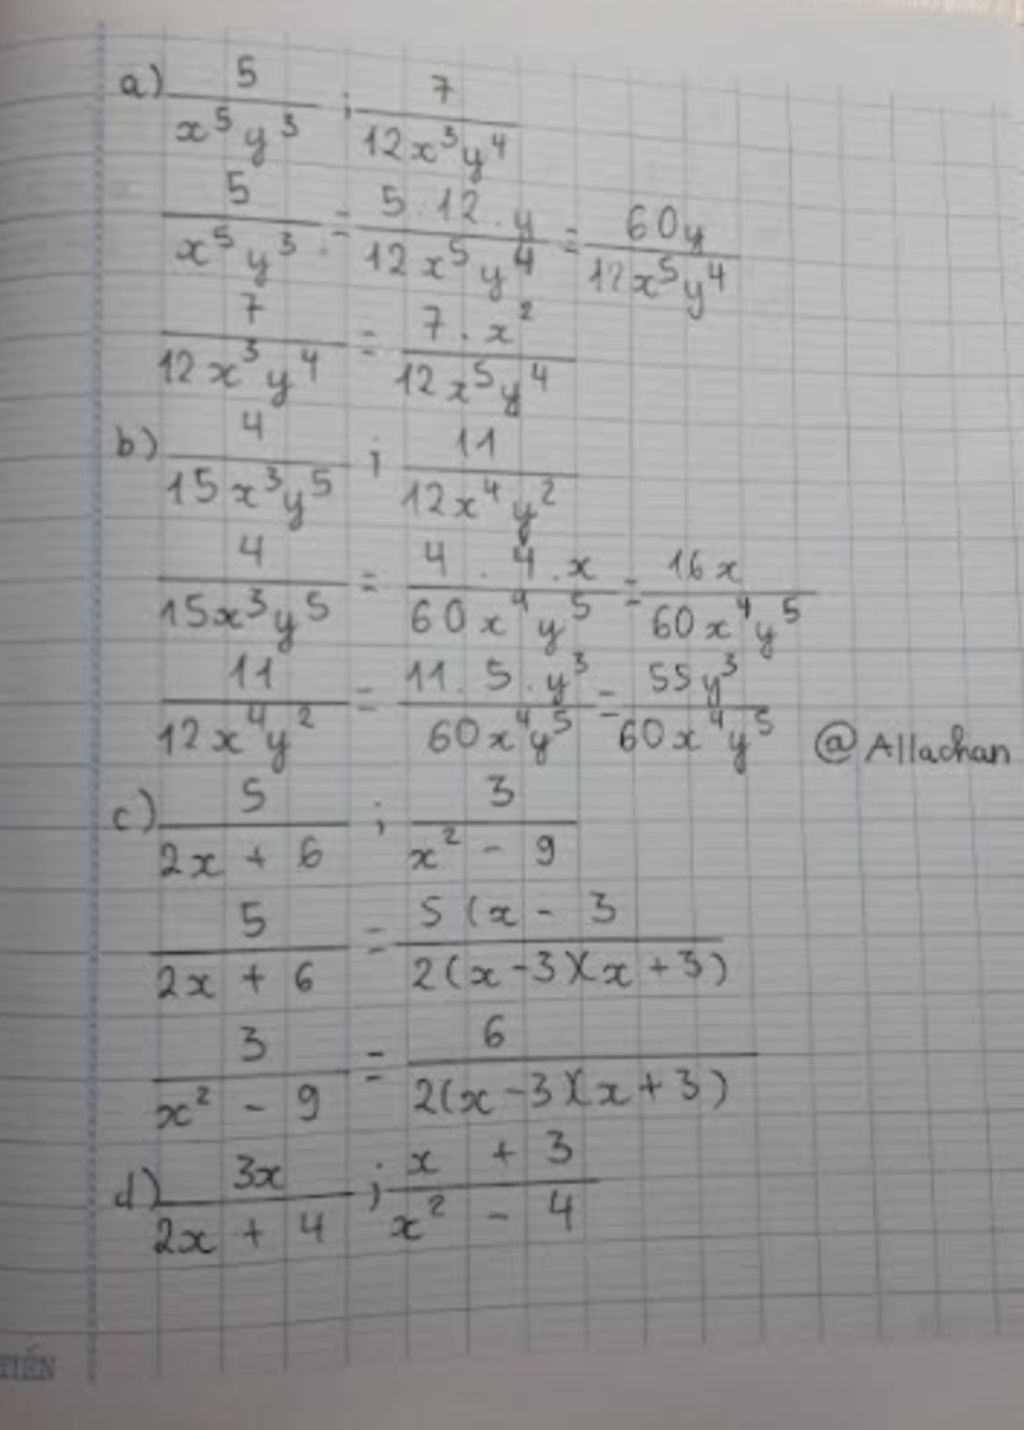 a) 5/(x⁵y³) ; 7/(12x³y⁴)
5/(x⁵y³) = (5.12.y)/(12x⁵y⁴) = 60y/(12x⁵y⁴)
7/(12x³y⁴) = (7.x²)/(12x⁵y⁴)
b) 4/(15x³y⁵) ; 11/(12x⁴y²)
4/(15x³y⁵) = (4.4.x)/(60x⁴y⁵) = 16x/(60x⁴y⁵)
11/(12x⁴y²) = (11.5.y³)/(60x⁴y⁵) = 55y³/(60x⁴y⁵) @Allachan
c) 5/(2x + 6) ; 3/(x² - 9)
5/(2x + 6) = 5(x - 3/(2(x-3)(x+3))
3/(x² - 9) = 6/(2(x-3)(x+3))
d) 3x/(2x + 4) ; (x + 3)/(x² - 4)
TIẾN